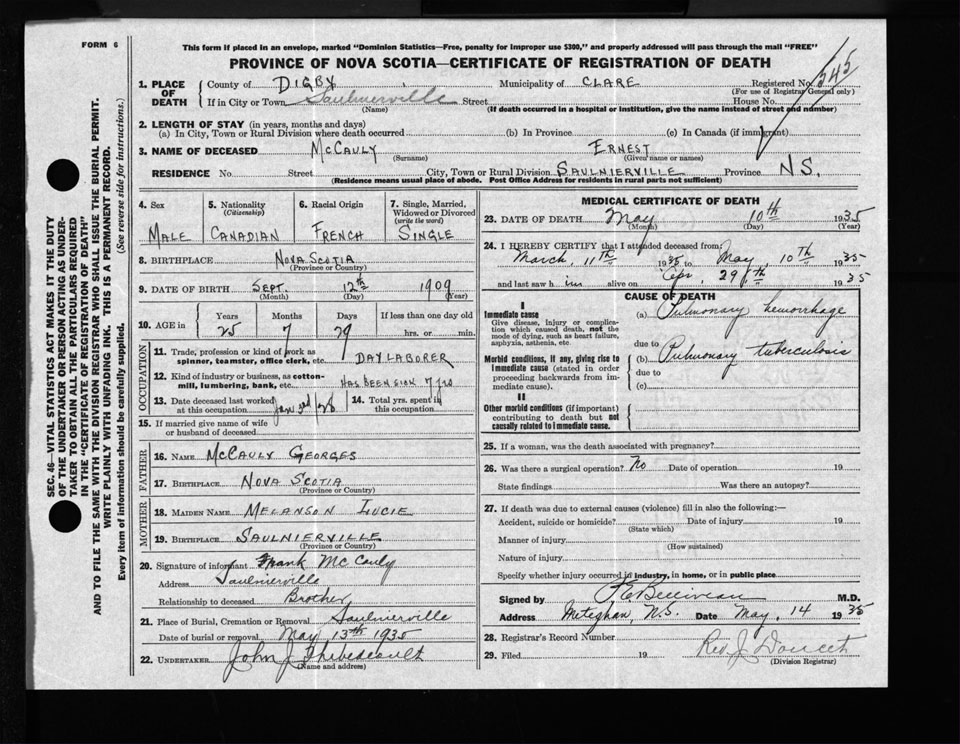 FORM 6
This form if placed in an envelope, marked "Dominion Statistics—Free, penalty for improper use $300," and properly addressed will pass through the mail "FREE"
PROVINCE OF NOVA SCOTIA—CERTIFICATE OF REGISTRATION OF DEATH
1. PLACE OF DEATH
County of DIGBY Municipality of CLARE Registered No. 345
(For use of Registrar General only)
If in City or Town Saulnierville Street House No.
(Name) (If death occurred in a hospital or institution, give the name instead of street and number)
2. LENGTH OF STAY (in years, months and days)
(a) In City, Town or Rural Division where death occurred (b) In Province (c) In Canada (if immigrant)
3. NAME OF DECEASED McCAULY ERNEST
(Surname) (Given name or names)
RESIDENCE No. Street City, Town or Rural Division SAULNIERVILLE Province NS.
(Residence means usual place of abode. Post Office Address for residents in rural parts not sufficient)
4. Sex 5. Nationality (Citizenship) 6. Racial Origin 7. Single, Married, Widowed or Divorced (write the word)
MALE CANADIAN FRENCH SINGLE
8. BIRTHPLACE NOVA SCOTIA
(Province or Country)
9. DATE OF BIRTH SEPT. 12th 1909
(Month) (Day) (Year)
10. AGE in Years Months Days If less than one day old
25 7 29 hrs. or min.
OCCUPATION
11. Trade, profession or kind of work as spinner, teamster, office clerk, etc. DAY LABORER
12. Kind of industry or business, as cotton-mill, lumbering, bank, etc. HAS BEEN SICK 7 yrs
13. Date deceased last worked at this occupation 14. Total yrs. spent in this occupation
15. If married give name of wife or husband of deceased
FATHER
16. NAME McCAULY GEORGES
17. BIRTHPLACE NOVA SCOTIA
(Province or Country)
MOTHER
18. MAIDEN NAME MELANSON LUCIE
19. BIRTHPLACE SAULNIERVILLE
(Province or Country)
20. Signature of informant Frank McCauly
Address Saulnierville
Relationship to deceased Brother
21. Place of Burial, Cremation or Removal Saulnierville
Date of burial or removal May 13th 1935
22. UNDERTAKER John J Thibedeault
(Name and address)
MEDICAL CERTIFICATE OF DEATH
23. DATE OF DEATH May 10th 1935
(Month) (Day) (Year)
24. I HEREBY CERTIFY that I attended deceased from:
March, 11th 1935 to May, 10th 1935
and last saw him alive on 29th 1935
CAUSE OF DEATH
I
Immediate cause
Give disease, injury or complication which caused death, not the mode of dying, such as heart failure, asphyxia, asthenia, etc.
(a) Pulmonary hemorrhage
due to
Morbid conditions, if any, giving rise to immediate cause (stated in order proceeding backwards from immediate cause).
(b) Pulmonary tuberculosis
due to
(c)
II
Other morbid conditions (if important) contributing to death but not causally related to immediate cause.
25. If a woman, was the death associated with pregnancy?
26. Was there a surgical operation? No Date of operation 19
State findings Was there an autopsy?
27. If death was due to external causes (violence) fill in also the following:—
Accident, suicide or homicide? Date of injury 19
(State which)
Manner of injury
(How sustained)
Nature of injury
Specify whether injury occurred in industry, in home, or in public place
Signed by M.D.
Address Meteghan, N.S. Date May, 14 1935
28. Registrar's Record Number
29. Filed 19 Rev J Doucet
(Division Registrar)
SEC. 46—VITAL STATISTICS ACT MAKES IT THE DUTY
OF THE UNDERTAKER OR PERSON ACTING AS UNDER-
TAKER TO OBTAIN ALL THE PARTICULARS REQUIRED
IN THE "CERTIFICATE OF REGISTRATION OF DEATH"
AND TO FILE THE SAME WITH THE DIVISION REGISTRAR WHO SHALL ISSUE THE BURIAL PERMIT.
WRITE PLAINLY WITH UNFADING INK. THIS IS A PERMANENT RECORD.
Every item of information should be carefully supplied. (See reverse side for instructions.)